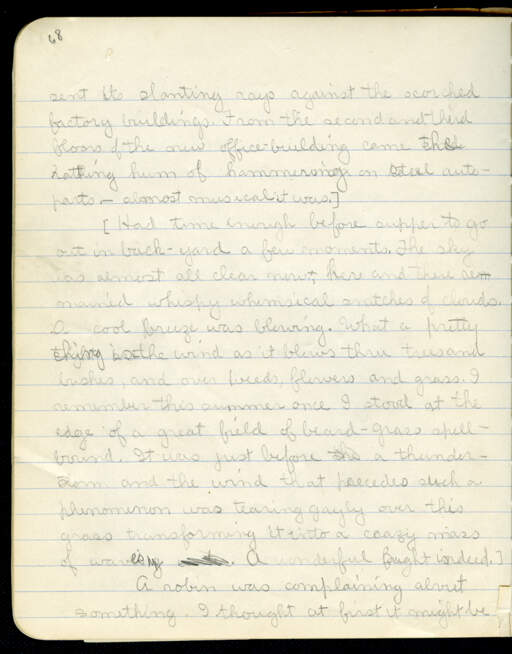 68
sent its slanting rays against the scorched
factory buildings. From the second and third
floors of the new office-building came the
rathing hum of hammersing on steel auto-
parts – almost musical it was.]
[Had time enough before supper to go
out in back-yard a few moments. The sky
was almost all clear now; here and there re-
mained whispy whimsical snatches of clouds.
A cool breeze was blowing. What a pretty
thing is the wind as it blows thru trees and
bushes, and over weeds, flowers and grass. I
remember this summer once I stood at the
edge of a great field of beard-grass spell-
bound. It was just before a thunder-
storm and the wind that precedes such a
phenominon was tearing gayly over this
grass transforming it into a crazy mass
of waves. A wonderful sight indeed.]
A robin was complaining about
something. I thought at first it might be